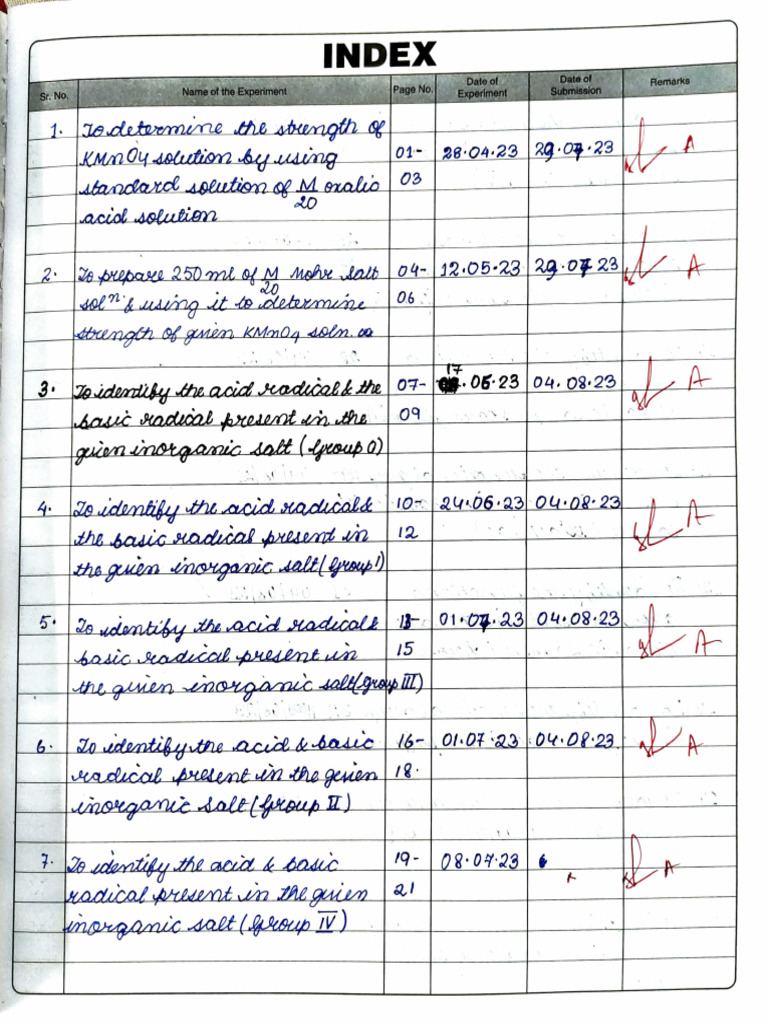 INDEX
Sr. No. Name of the Experiment Page No. Date of Experiment Date of Submission Remarks
1. To determine the strength of
KMnO4 solution by using 01- 28.04.23 29.07.23 A
standard solution of M/20 oxalic 03
acid solution
2. To prepare 250 ml of M/20 Mohr salt 04- 12.05.23 29.07.23 A
solⁿ & using it to determine 06
strength of given KMnO4 soln.
3. To identify the acid radical & the 07- 17.06.23 04.08.23 A
basic radical present in the 09
given inorganic salt (Group 0)
4. To identify the acid radical & 10- 24.06.23 04.08.23 A
the basic radical present in 12
the given inorganic salt (Group I)
5. To identify the acid radical & 13- 01.07.23 04.08.23 A
basic radical present in 15
the given inorganic salt (Group III)
6. To identify the acid & basic 16- 01.07.23 04.08.23 A
radical present in the given 18.
inorganic salt (Group II)
7. To identify the acid & basic 19- 08.07.23 A
radical present in the given 21
inorganic salt (Group IV)